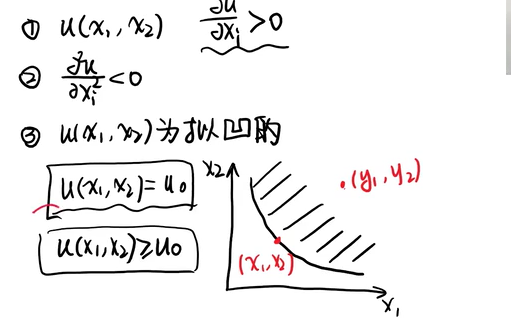 ① u(x₁,x₂) ∂u/∂xᵢ>0
② ∂²u/∂xᵢ²<0
③ u(x₁,x₂)为拟凹的
u(x₁,x₂)=u₀
u(x₁,x₂)≥u₀
x₂
(y₁,y₂)
(x₁,x₂)
x₁